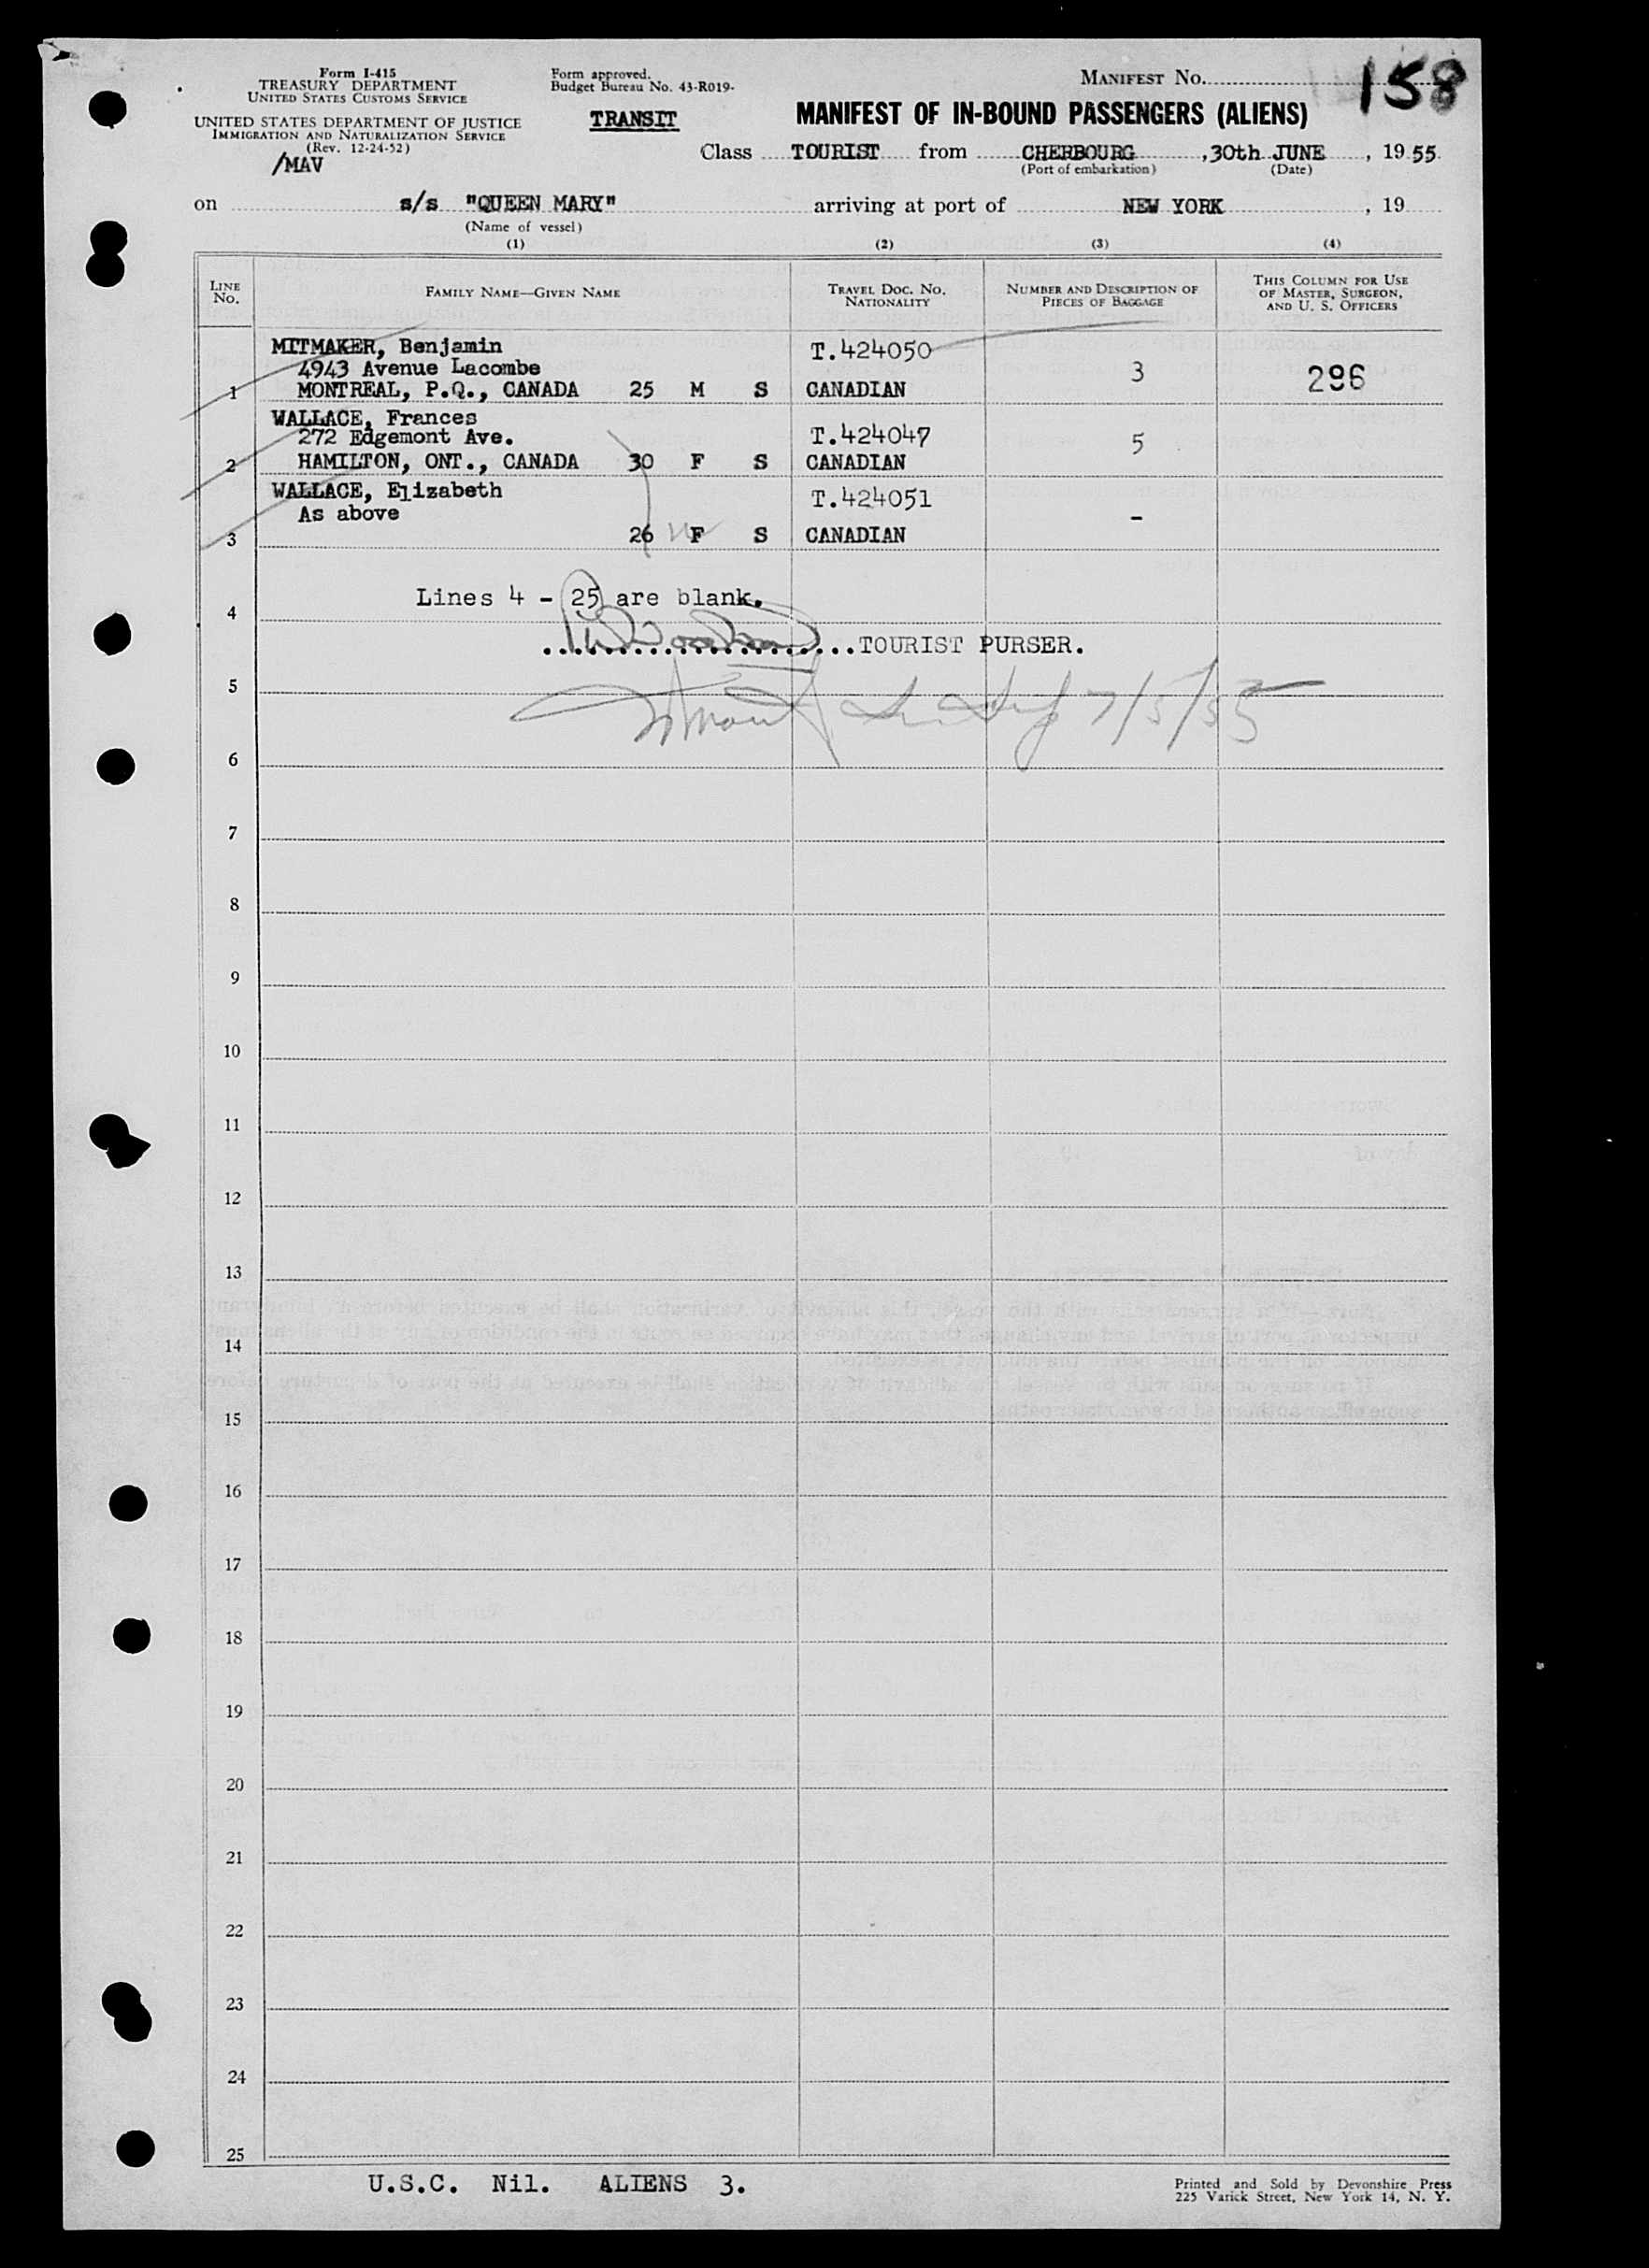 Form I-415
TREASURY DEPARTMENT
UNITED STATES CUSTOMS SERVICE
UNITED STATES DEPARTMENT OF JUSTICE
IMMIGRATION AND NATURALIZATION SERVICE
(Rev. 12-24-52)
/MAV
Form approved.
Budget Bureau No. 43-R019-
TRANSIT
MANIFEST NO. 158
MANIFEST OF IN-BOUND PASSENGERS (ALIENS)
Class TOURIST from CHERBOURG, 30th JUNE, 19 55
(Port of embarkation) (Date)
on s/s "QUEEN MARY" arriving at port of NEW YORK, 19
(Name of vessel)
(1) (2) (3) (4)
LINE NO.
FAMILY NAME—GIVEN NAME
TRAVEL DOC. NO.
NATIONALITY
NUMBER AND DESCRIPTION OF
PIECES OF BAGGAGE
THIS COLUMN FOR USE
OF MASTER, SURGEON,
AND U. S. OFFICERS
MITMAKER, Benjamin T.424050
4943 Avenue Lacombe 3 296
1 MONTREAL, P.Q., CANADA 25 M S CANADIAN
WALLACE, Frances
272 Edgemont Ave. T.424047 5
2 HAMILTON, ONT., CANADA 30 F S CANADIAN
WALLACE, Elizabeth T.424051
As above -
3 26 F S CANADIAN
Lines 4 - 25 are blank.
4
TOURIST PURSER.
5
7/5/55
6
7
8
9
10
11
12
13
14
15
16
17
18
19
20
21
22
23
24
25
U.S.C. Nil. ALIENS 3.
Printed and Sold by Devonshire Press
225 Varick Street, New York 14, N. Y.